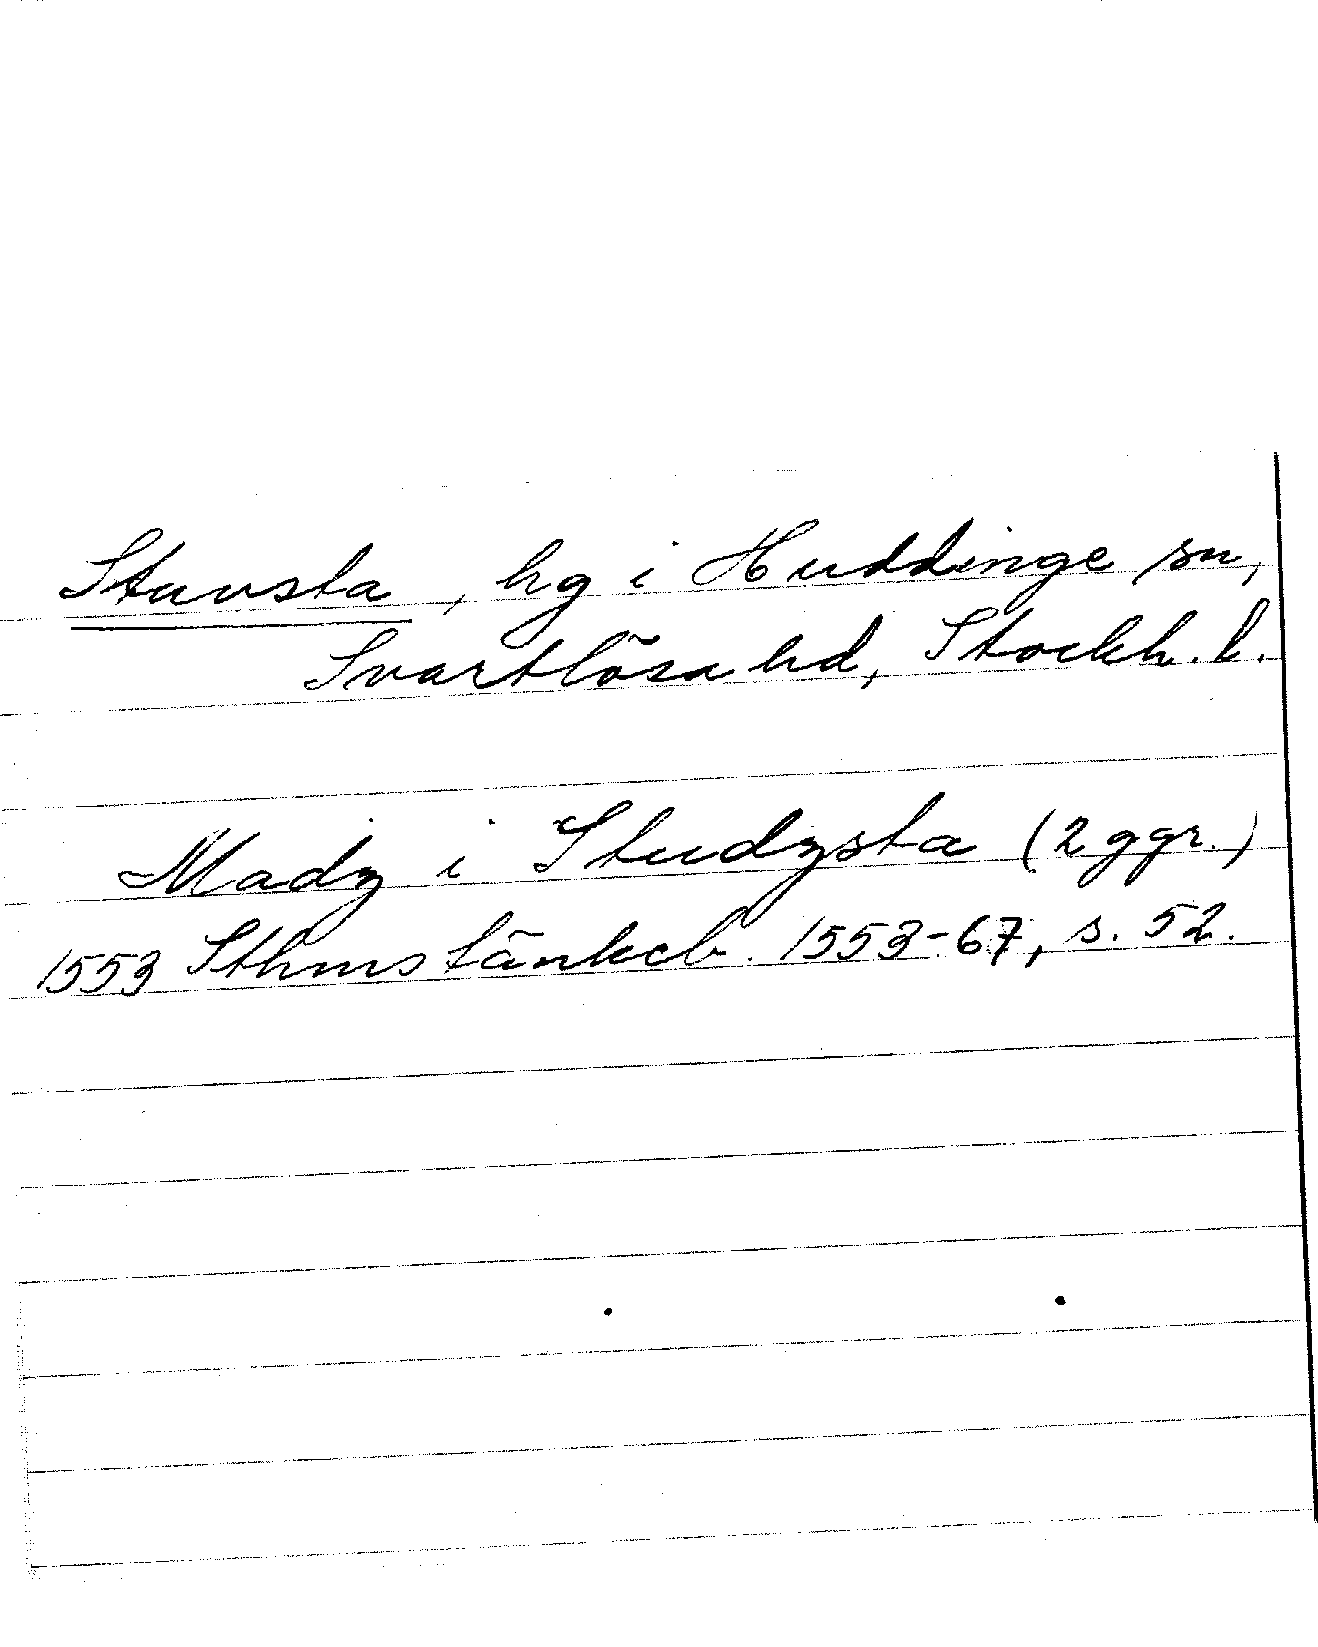 Stuvsta, hg i Huddinge sn,
Svartlösa hd, Stockh. l.
Madz i Studzsta (2 ggr.)
1553 Sthms tänkeb. 1553-67, s. 52.